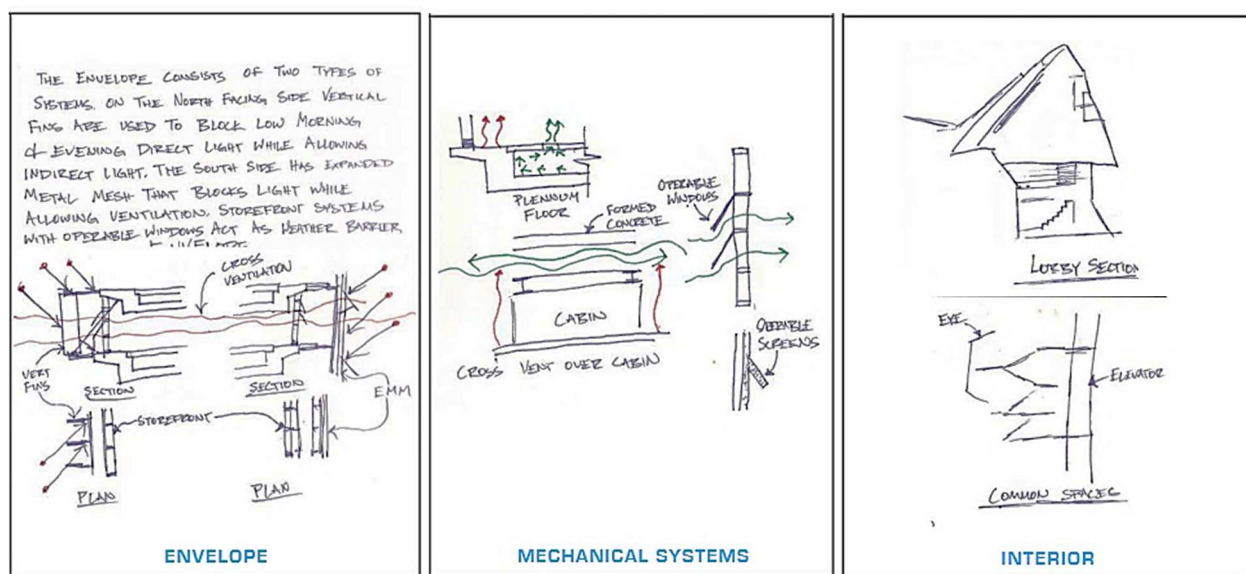 THE ENVELOPE CONSISTS OF TWO TYPES OF
SYSTEMS. ON THE NORTH FACING SIDE VERTICAL
FINS ARE USED TO BLOCK LOW MORNING
& EVENING DIRECT LIGHT WHILE ALLOWING
INDIRECT LIGHT. THE SOUTH SIDE HAS EXPANDED
METAL MESH THAT BLOCKS LIGHT WHILE
ALLOWING VENTILATION. STOREFRONT SYSTEMS
WITH OPERABLE WINDOWS ACT AS WEATHER BARRIER
CROSS
VENTILATION
VERT
FINS
SECTION
SECTION
EMM
STOREFRONT
PLAN
PLAN
ENVELOPE
PLENNUM
FLOOR
OPERABLE
WINDOWS
FORMED
CONCRETE
CABIN
CROSS VENT OVER CABIN
OPERABLE
SCREENS
MECHANICAL SYSTEMS
LOBBY SECTION
EYE
ELEVATOR
COMMON SPACES
INTERIOR